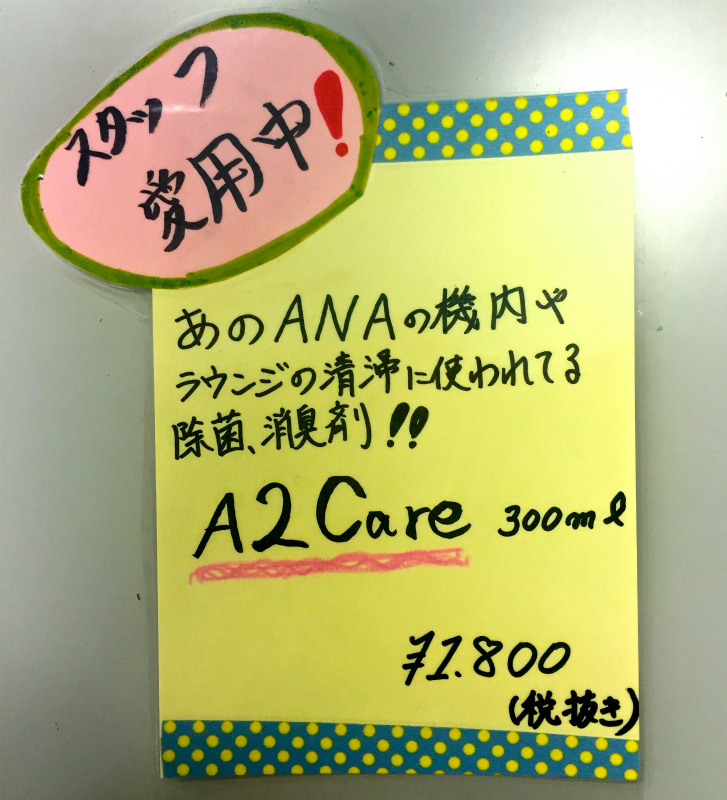 スタッフ
愛用中!
あのANAの機内や
ラウンジの清掃に使われてる
除菌、消臭剤!!
A2Care 300ml
¥1.800
(税抜き)